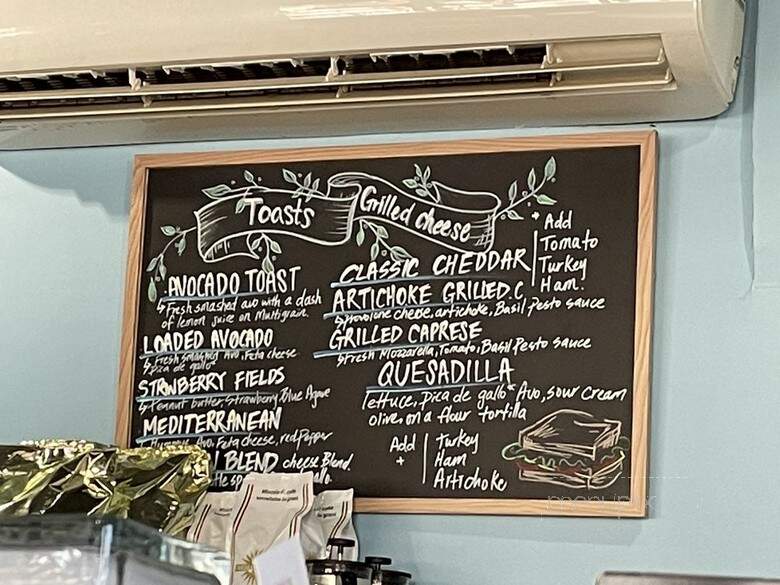 Toasts
AVOCADO TOAST
Fresh smashed avo with a dash
of lemon juice on Multigrain.
LOADED AVOCADO
Fresh smashed Avo, Feta cheese
pica de gallo
STRWBERRY FIELDS
Peanut butter, Strawberry, Blue Agave
MEDITERRANEAN
Hummus, Avo, Feta cheese, red Pepper
BLEND cheese Blend.
Grilled cheese
CLASSIC CHEDDAR
+ Add
Tomato
Turkey
Ham.
ARTICHOKE GRILLED.C
provolone cheese, artichoke, Basil Pesto sauce
GRILLED CAPRESE
Fresh Mozzarella, Tomato, Basil Pesto sauce
QUESADILLA
lettuce, Pica de gallo Avo, sour Cream
olive, on a flour tortilla
Add +
Turkey
Ham
Artichoke
menupix